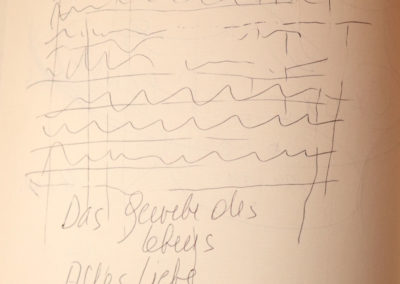 Das Gewebe des
lebens
Alles liebe